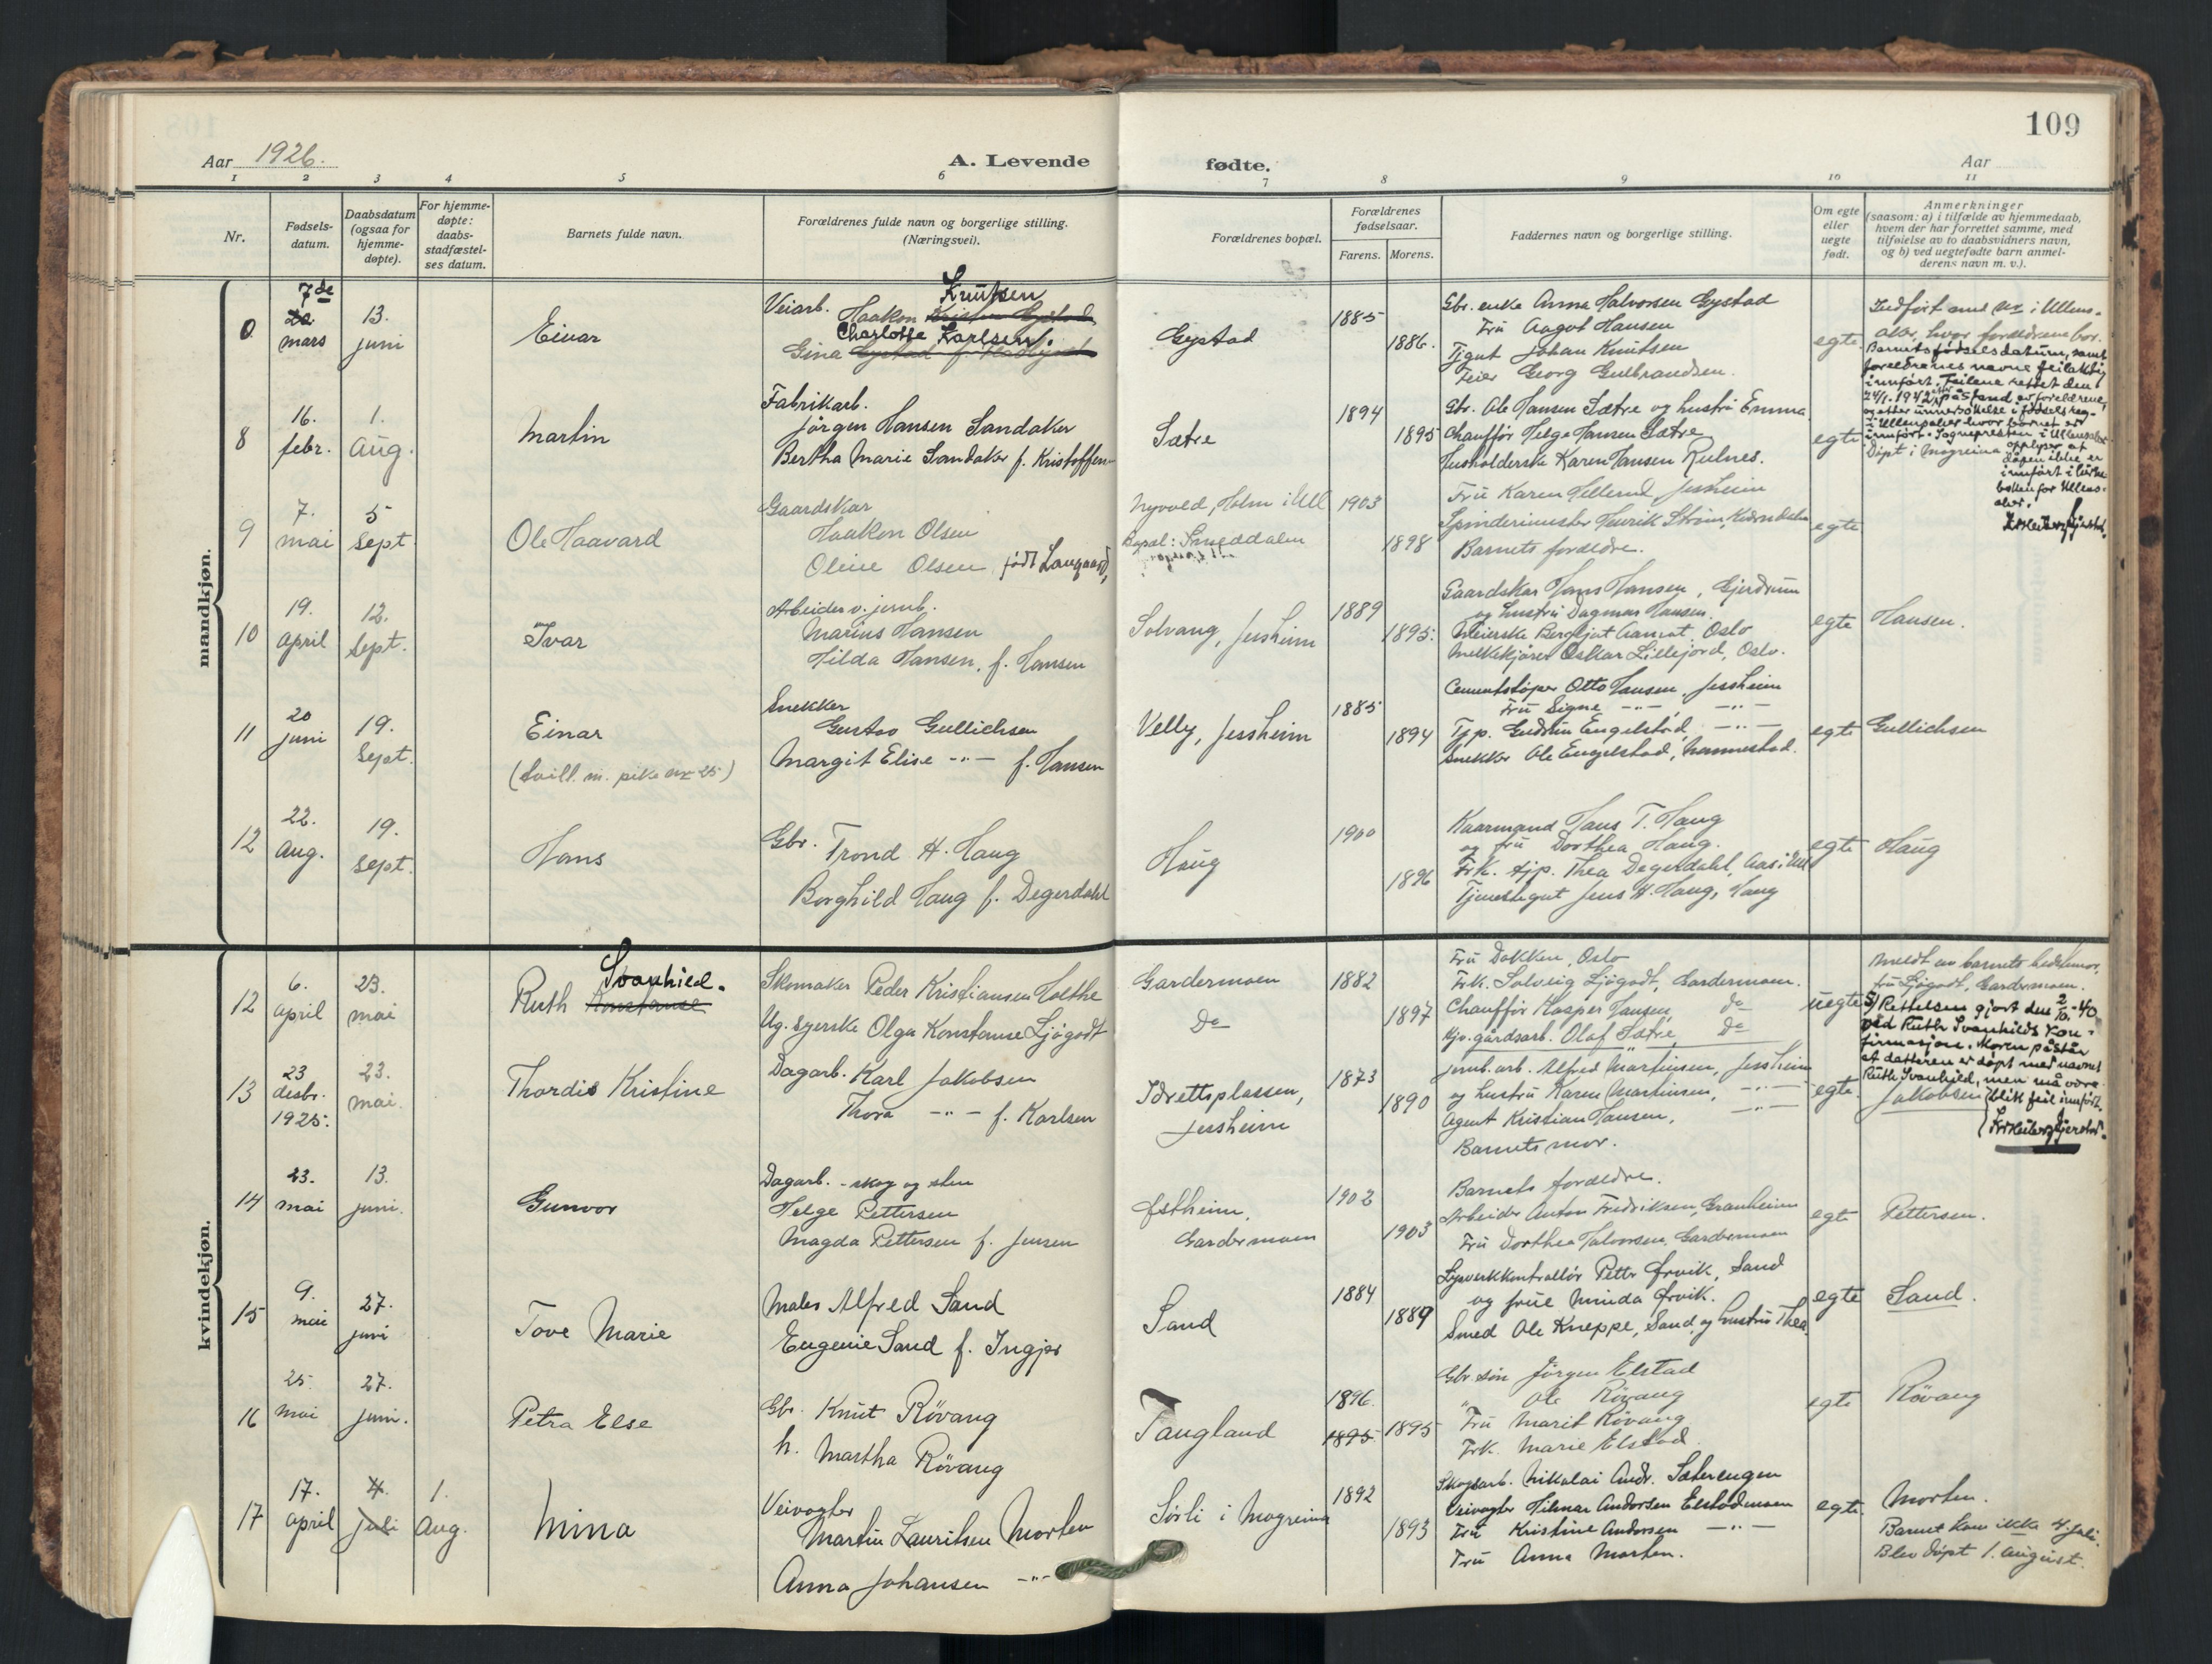 109
Aar 1926.
A. Levende fødte.
Aar
1 2 3 4 5 6 7 8 9 10 11
Nr.
Fødsels-
datum.
Daabsdatum
(ogsaa for
hjemme-
døpte).
For hjemme-
døpte:
daabs-
stadfæstel-
ses datum.
Barnets fulde navn.
Forældrenes fulde navn og borgerlige stilling.
(Næringsvei).
Forældrenes bopæl.
Forældrenes
fødselsaar.
Farens. Morens.
Faddernes navn og borgerlige stilling.
Om egte
eller
uegte
født.
Anmerkninger
(saasom: a) i tilfælde av hjemmedaab,
hvem der har forrettet samme, med
tilføielse av to daabsvidners navn,
og b) ved uegtefødte barn anmel-
derens navn m. v.).
mandkjøn.
0
7de
mars
13.
juni
Einar
Knutsen
Veiarb. Haakon
Charlotte Karlsen.
Gina
Gystad
1885
1886.
Gbr. enke Anna Halvorsen Gystad
Fru Aagot Hansen
Tjgut Johan Knutsen
Feier Georg Gulbrandsen.
egte
Indført und nr i Ullens-
aker, hvor forældrene bor.
Barnets fødselsdatum, samt
foreldrenes navne feilaktig
innført. Feilene rettet den
24/1. 1942 påstand av foreldrene,
og etter undersökelse i fødselsreg-
i Ullensaker hvor barnet er
innført. Sognepresten i Ullensaker
opplyser at
dåpen ikke er
innført i kirke
boken for Ullens-
aker.
8
16.
febr.
1.
Aug.
Martin
Fabrikarb.
Jörgen Hansen Sandaker
Bertha Marie Sandaker f. Kristoffersen
Sætre
1894
1895
Gbr. Ole Hansen Sætre og hustru Emma
Chauffør Helge Hansen Sætre
Husholderske Karen Hansen Rulnes.
egte
Døpt i Mogreina
9
7.
mai
5
Sept
Ole Haavard
Gaardskar
Haakon Olsen
Oline Olsen født Laugaard,
Nyvold, Holm i Ull
Bopæl: Smeddalen
1903
1898
Fru Karen Hellerud Jessheim
Spinderimester Henrik Strøm, Kværndalen
Barnets forældre.
egte
10
19.
April
12.
Sept.
Ivar
Arbeider v. jernb.
Marius Hansen
Hilda Hansen, f. Hansen
Solvang, Jessheim
1889
1895.
Gaardskar Hans Hansen, Gjerdrum
og hustru Dagmar Hansen.
Meierske Bergljot Aamot, Oslo
Melkekjører Oskar Lillejord, Oslo.
egte
Hansen.
11
20
juni
19.
Sept.
Einar
(tvill. m. pike nr 25)
Snekker
Gustav Gullichsen
Margit Elise -"- f. Hansen
Velly, Jessheim
1885
1894
Cementstøper Otto Hansen, Jessheim
Fru Signe -"-, -"-
Tjp. Gudrun Engelstad, -"-
Snekker Ole Engelstad, Nannestad.
egte
Gullichsen
12
22.
Aug.
19.
Sept.
Hans
Gbr. Trond H. Haug
Borghild Haug f. Degerdahl
Haug
1900
1896
Kaarmand Hans T. Haug
og fru Dorthea Haug.
Frk. tjp. Thea Degerdahl, Aas i Ull
Tjenestegut Jens H. Haug, Haug
egte
Haug
kvindekjøn.
12
6.
April
23.
mai
Svanhild.
Ruth Konstanse
Skomaker Peder Kristiansen Holthe
Ug. syerske Olga Konstanse Ljøgodt
Gardermoen
Do
1882
1897
Fru Dokken, Oslo
Frk. Solveig Ljøgodt, Gardermoen.
Chauffør Kasper Hansen, do
Hjv. gårdsarb. Olaf Sætre, Do
uegte
Meldt av barnets bedstemor,
fru Ljøgodt, Gardermoen.
S/ Rettelsen gjort den 2/10.-40
ved Ruth Svanhilds kon-
firmasjon. Moren påstår
at datteren er døpt med navnet
Ruth Svanhild, men må være
blitt feil innført.
13
23
desbr.
1925.
23.
mai.
Thordis Kristine
Dagarb. Karl Jakobsen
Thora -"- f. Karlsen
Idrettsplassen,
Jessheim
1873
1890
Jernb. arb. Alfred Martinsen, Jessheim
og hustru Karen Martinsen, -"-
Agent Kristian Hansen, -"-
Barnets mor.
egte
Jakobsen
14
23.
mai
13.
juni.
Gunvor
Dagarb. - skog og sten
Helge Pettersen
Magda Pettersen f. Jensen
Østheim,
Gardermoen
1902
1903
Barnets forældre.
Arbeider Anton Fredriksen, Granheim
Fru Dorthea Halvorsen, Gardermoen
egte
Pettersen.
15
9.
mai
27.
juni
Tove Marie
Maler Alfred Sand
Eugenie Sand f. Ingjer
Sand
1884
1889
Lysverkkontrollör Petter Ørvik, Sand
og frue Minda Ørvik.
Smed Ole Kneppe, Sand, og hustru Thea.
egte
Sand.
16
25.
mai
27.
juni.
Petra Else
Gbr. Knut Rövang
h. Martha Rövang
Taugland
1896.
1895
1895
Gbr. søn Jörgen Elstad
" Ole Rövang
Fru Marit Rövang
Frk. Marie Elstad.
egte
Rövang
17
17.
april
4.
juli
1.
Aug.
Mina
Veivogter
Martin Lauritsen Morten
Anna Johansen -"-
Sørli i Mogreina
1892
1893
Skogsarb. Nikolai Andr. Sæterengen
Veivogter Hilmar Andersen Elstadmoen
Fru Kristine Andersen -"-
Fru Anna Morten.
egte.
Morten.
Barnet kom ikke 4. juli.
Blev døpt 1. august.